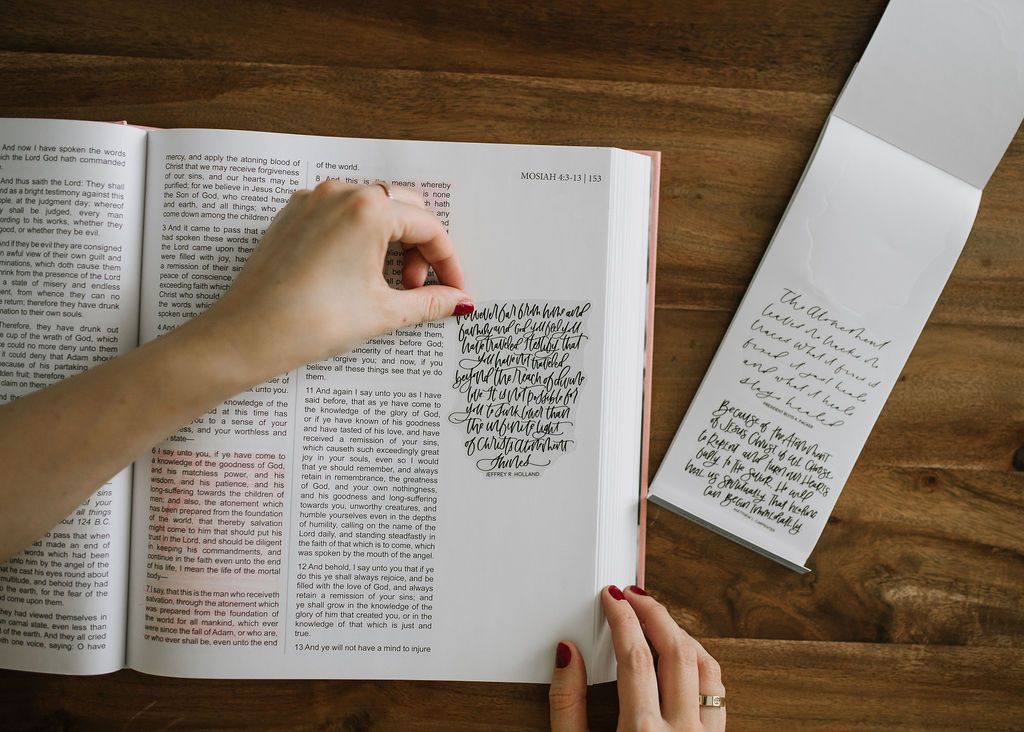 And now I have spoken the words
which the Lord God hath commanded
And thus saith the Lord: They shall
and as a bright testimony against this
at the judgment day; whereof
shall be judged, every man
according to his works, whether they
good, or whether they be evil.
And if they be evil they are consigned
awful view of their own guilt and
abominations, which doth cause them
shrink from the presence of the Lord
a state of misery and endless
from whence they can no
return; therefore they have drunk
damnation to their own souls.
Therefore, they have drunk out
cup of the wrath of God, which
could no more deny unto them
it could deny that Adam should
because of his partaking
forbidden fruit; therefore
claim on them
all things
about 124 B.C.
to pass that when
had made an end of
words which had been
unto him by the angel of the
that he cast his eyes round about
multitude, and behold they had
to the earth, for the fear of the
had come upon them.
they had viewed themselves in
own carnal state, even less than
of the earth. And they all cried
with one voice, saying: O have
mercy, and apply the atoning blood of
Christ that we may receive forgiveness
of our sins, and our hearts may be
purified; for we believe in Jesus Christ
the Son of God, who created heaven
and earth, and all things; who
come down among the children
3 And it came to pass that
had spoken these words
the Lord came upon them
were filled with joy, having
a remission of their sins
peace of conscience,
exceeding faith which
Christ who should
the words which
4 And
unto you.
knowledge of the
at this time has
you to a sense of your
and your worthless and
state—
6 I say unto you, if ye have come to
a knowledge of the goodness of God,
and his matchless power, and his
wisdom, and his patience, and his
long-suffering towards the children of
men; and also, the atonement which
has been prepared from the foundation
of the world, that thereby salvation
might come to him that should put his
trust in the Lord, and should be diligent
in keeping his commandments, and
continue in the faith even unto the end
of his life, I mean the life of the mortal
body—
7 I say, that this is the man who receiveth
salvation, through the atonement which
was prepared from the foundation of
the world for all mankind, which ever
were since the fall of Adam, or who are,
or who ever shall be, even unto the end
of the world.
8 And this is the means whereby
is none
hath
any
ye must
forsake them,
yourselves before God;
sincerity of heart that he
forgive you; and now, if you
believe all these things see that ye do
them.
11 And again I say unto you as I have
said before, that as ye have come to
the knowledge of the glory of God,
or if ye have known of his goodness
and have tasted of his love, and have
received a remission of your sins,
which causeth such exceedingly great
joy in your souls, even so I would
that ye should remember, and always
retain in remembrance, the greatness
of God, and your own nothingness,
and his goodness and long-suffering
towards you, unworthy creatures, and
humble yourselves even in the depths
of humility, calling on the name of the
Lord daily, and standing steadfastly in
the faith of that which is to come, which
was spoken by the mouth of the angel.
12 And behold, I say unto you that if ye
do this ye shall always rejoice, and be
filled with the love of God, and always
retain a remission of your sins; and
ye shall grow in the knowledge of the
glory of him that created you, or in the
knowledge of that which is just and
true.
13 And ye will not have a mind to injure
MOSIAH 4:3-13 | 153
However far from home and
family and God you feel you
have traveled I testify that
you have not traveled
beyond the reach of divine
love. It is not possible for
you to sink lower than
the infinite light
of Christ's Atonement
shines
JEFFREY R. HOLLAND
The Atonement
leaves no tracks no
traces what it fixes is
fixed it just heals,
and what it heals
stays healed
PRESIDENT BOYD K PACKER
Because of the Atonement
of Jesus Christ if we choose
to Repent and turn our hearts
fully to the Savior He will
heal us spiritually that healing
can begin immediately